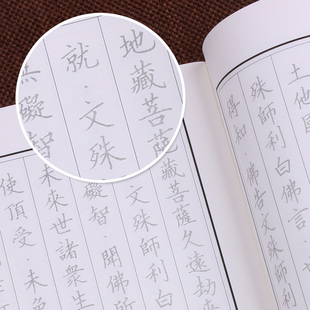 土他國
殊師利白佛言·
得知·佛告文殊師
地藏菩薩
就·文殊
無礙智
藏菩薩久遠劫來
殊師利白
礙智·聞佛所
未來世諸眾生
使頂受·未免